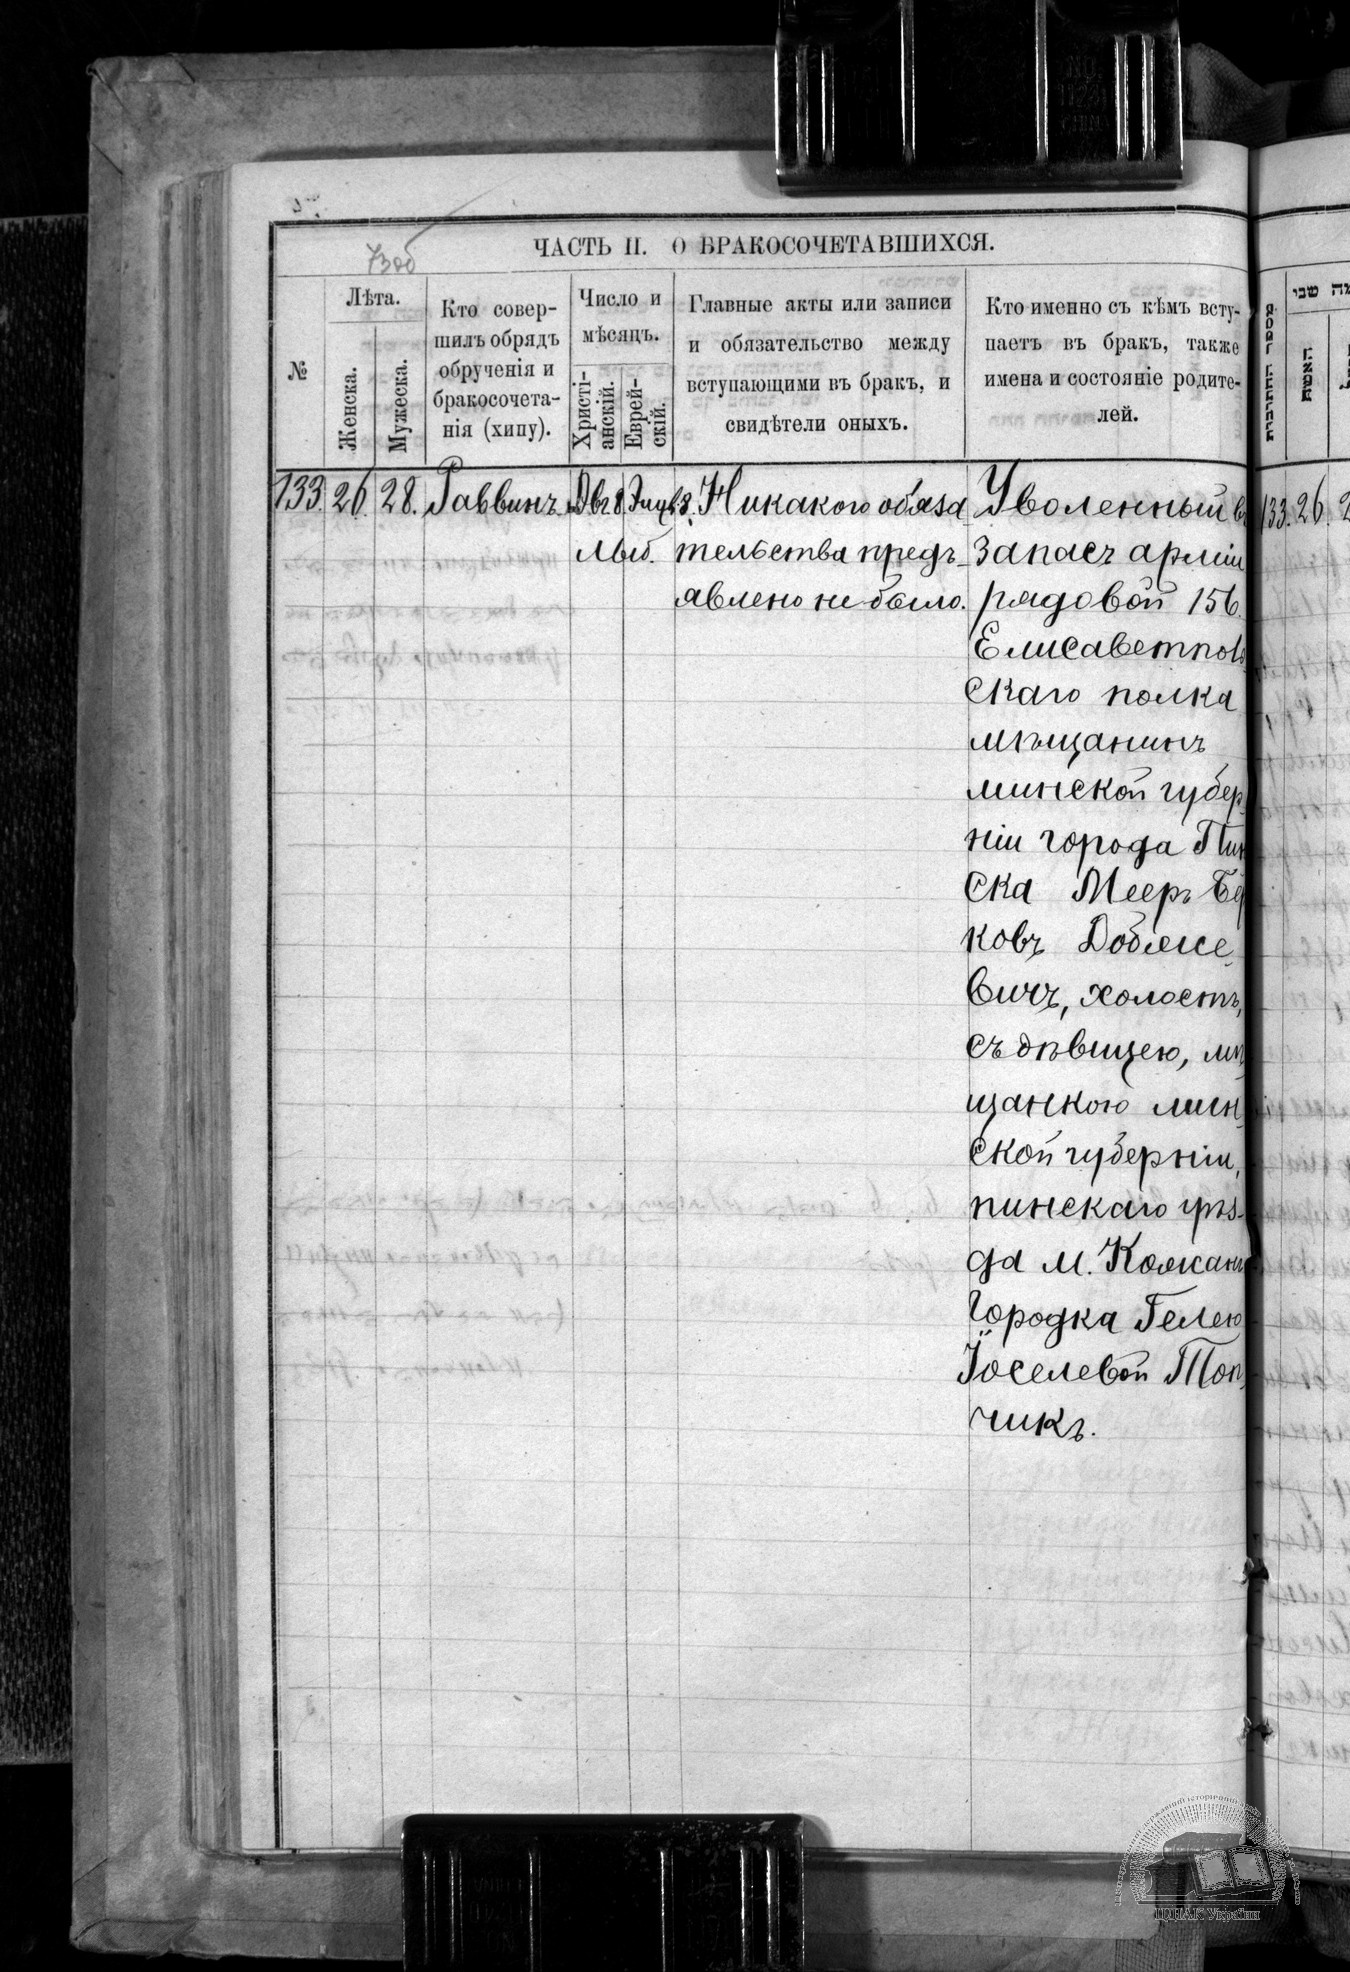 73об
ЧАСТЬ II. О БРАКОСОЧЕТАВШИХСЯ.
№
Лѣта.
Женска.
Мужеска.
Кто совер-
шилъ обрядъ
обрученія и
бракосочета-
нія (хипу).
Число и
мѣсяцъ.
Христі-
анскій.
Еврей-
скій.
Главные акты или записи
и обязательство между
вступающими въ бракъ, и
свидѣтели оныхъ.
Кто именно съ кѣмъ всту-
паетъ въ бракъ, также
имена и состояніе родите-
лей.
133. 26. 28. Раввинъ.
Никакого обяза
тельства предъ-
явлено не было.
Уволенный въ
запасъ арміи
рядовой 156
Елисаветполь
скаго полка
мѣщанинъ
минской губер
ніи города Пин
ска Мееръ Бер
ковъ Добяже
вичъ, холостъ,
съ дѣвицею, мѣ
щанкою мин
ской губерніи,
пинскаго уѣз-
да м. Кожанъ
Городка Гелею
Іоселевой Топ
чикъ.
האשה
133. 26.
ЦДІАК України